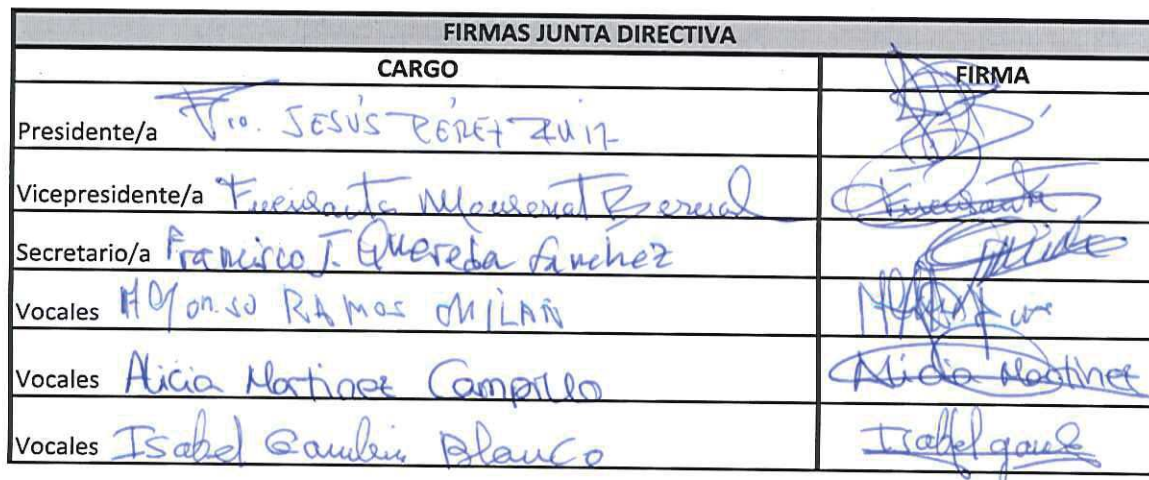 FIRMAS JUNTA DIRECTIVA
CARGO FIRMA
Presidente/a Fco. JESÚS PÉREZ RUIZ
Vicepresidente/a Fuensanta Monserrat Bernal Fuensanta
Secretario/a Francisco J. Quereda Sánchez
Vocales Alfonso RAMOS MILÁN
Vocales Alicia Martinez Campillo Alicia Martinez
Vocales Isabel Blanco Isabel